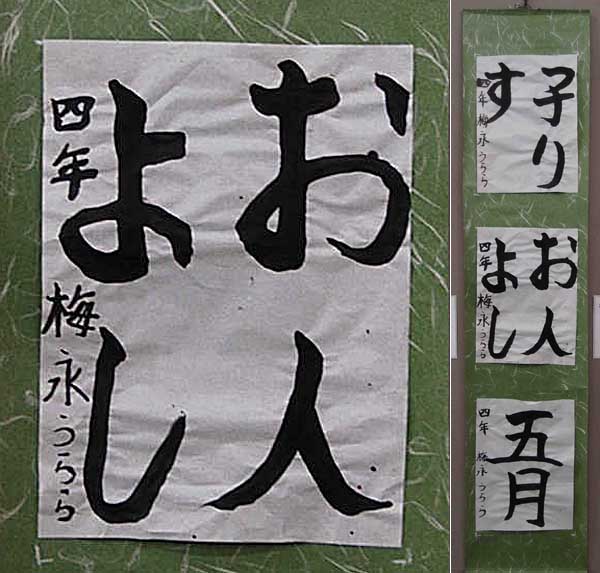 お人
よし
四年 梅永うらら
子り
す
四年 梅永うらら
お人
よし
四年 梅永うらら
五月
四年 梅永うらら